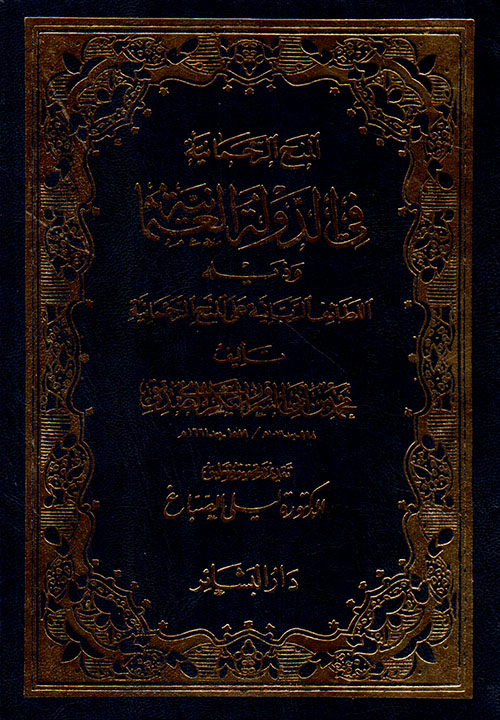 المنح الرحمانية
في الدولة العثمانية
وذيله
اللطائف الربانية على المنح الرحمانية
تأليف
محمد بن أبي السرور البكري الصديقي
تقديم وتحقيق وتعليق
الدكتورة ليلى الصباغ
دار البشائر